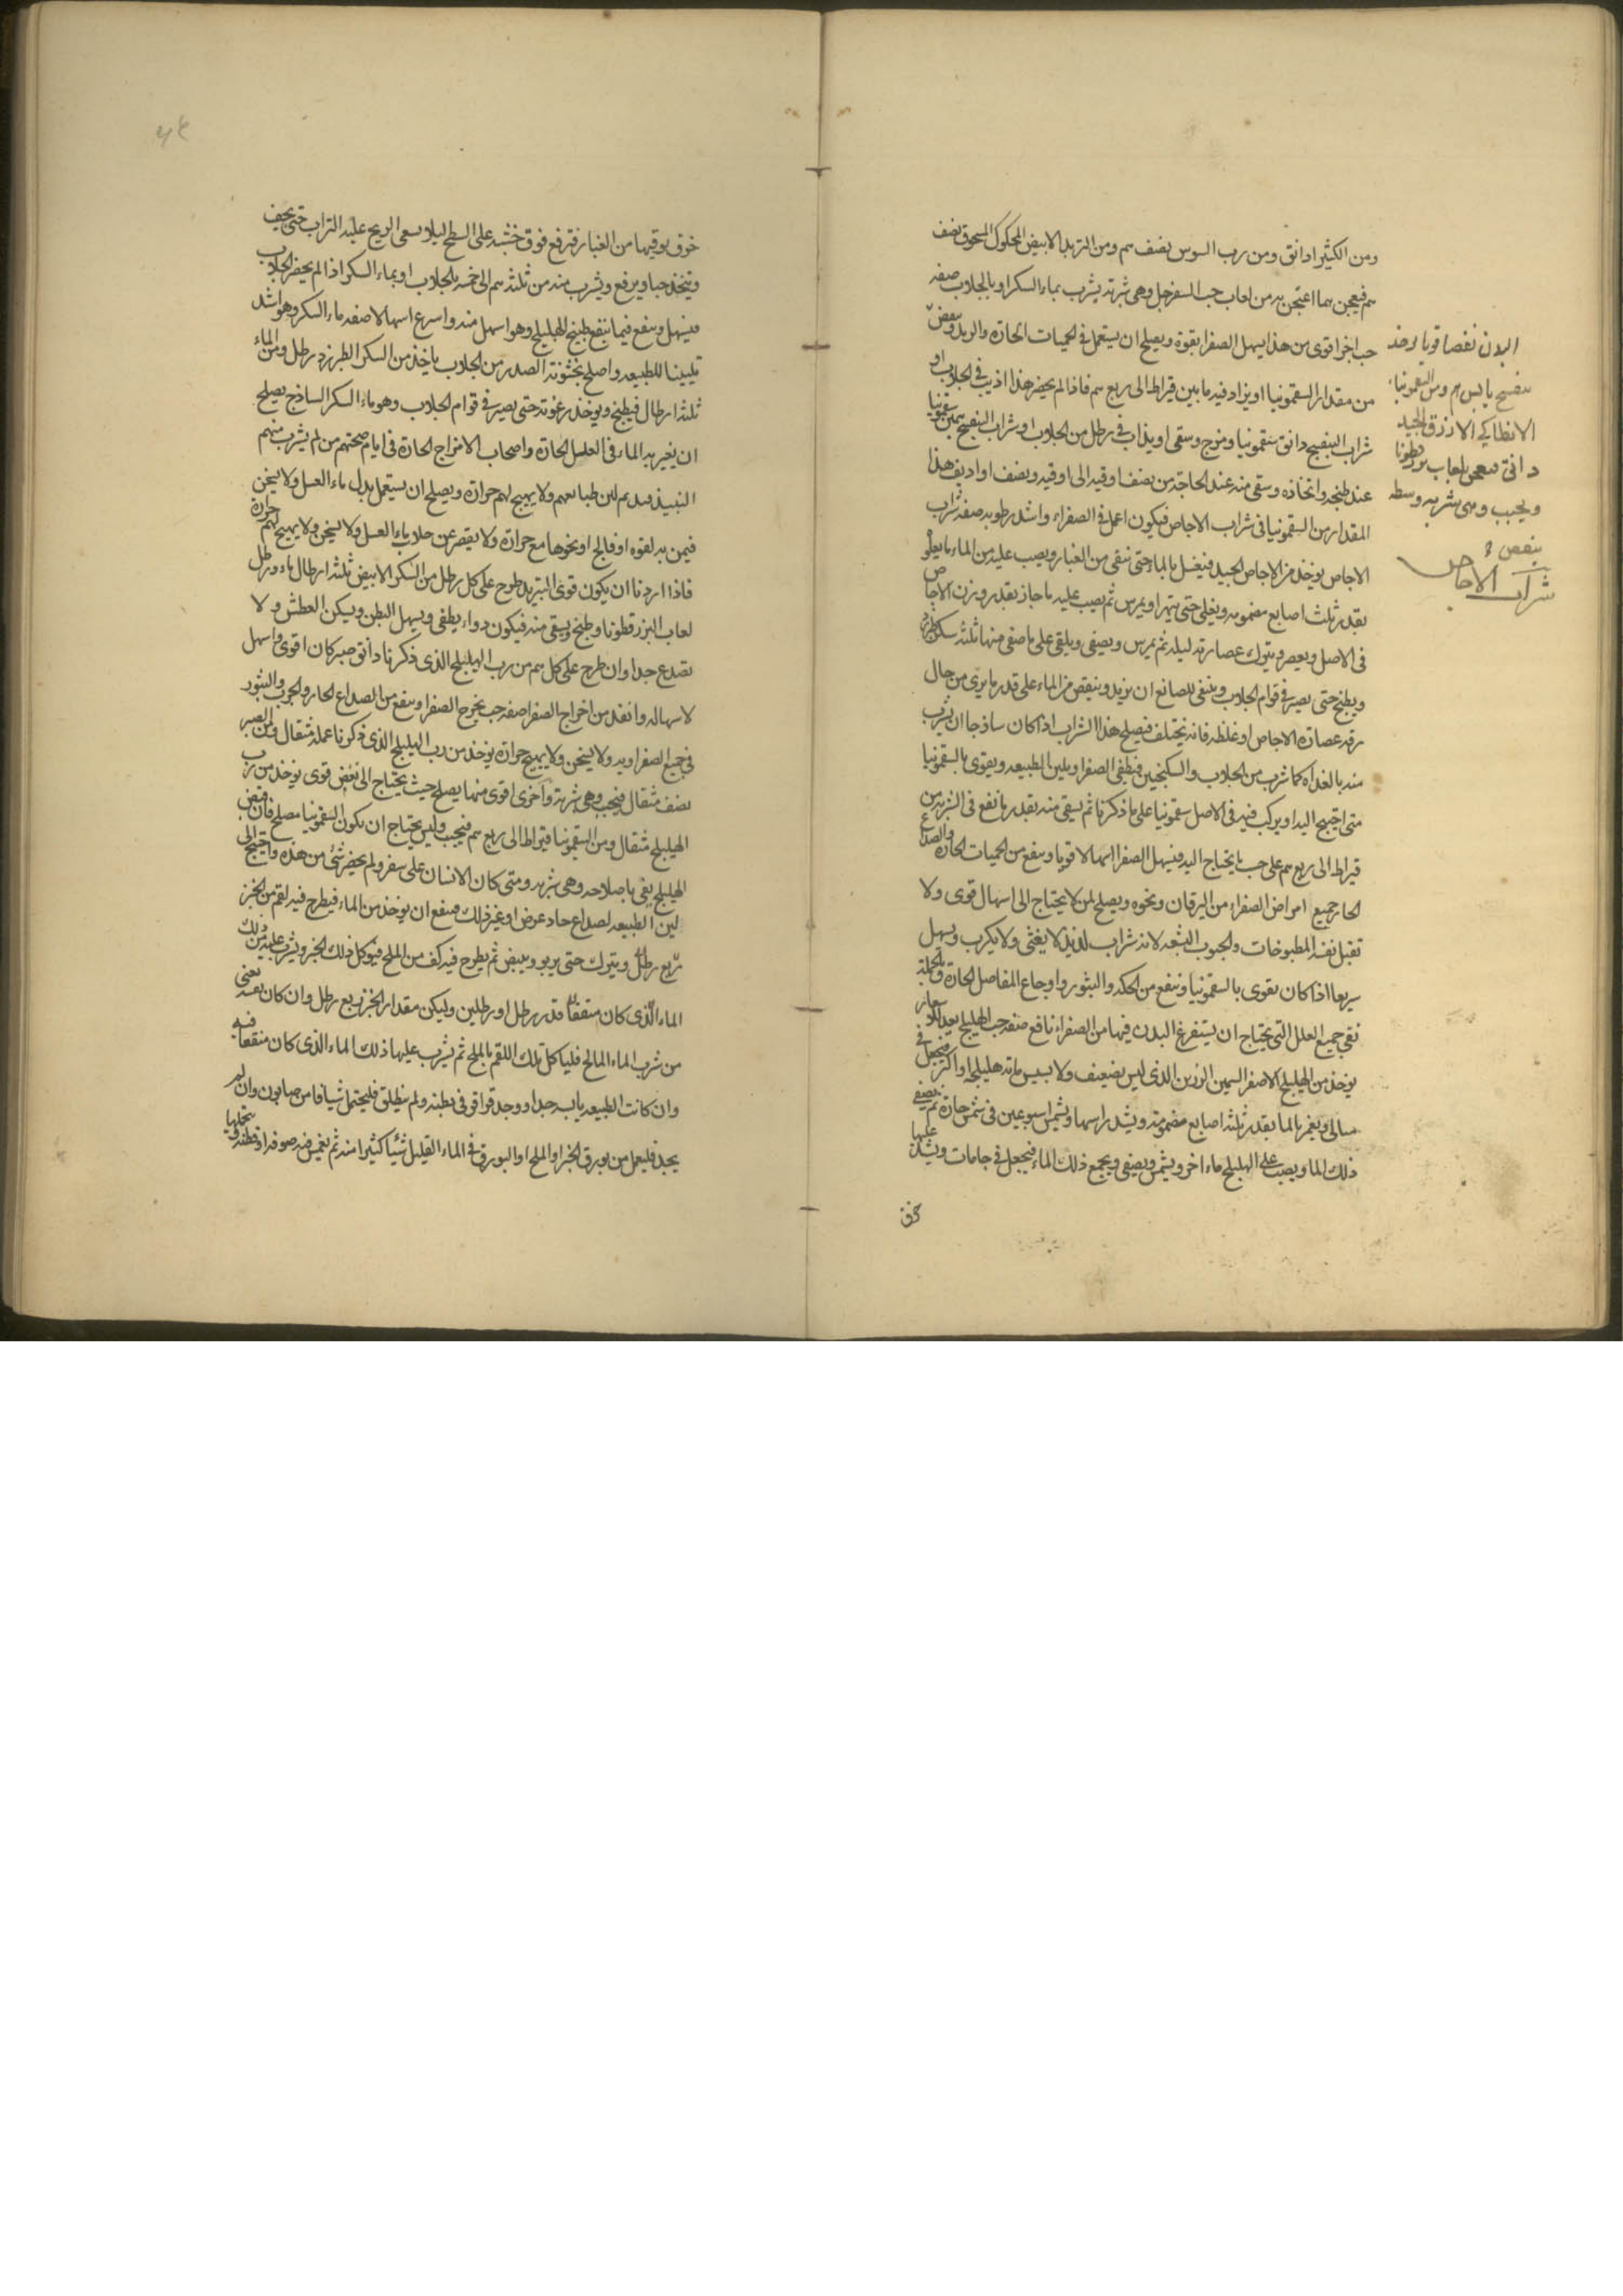 ومن الكثيرا دانق ومن رب السوس نصف سم ومن التربد الابيض المحكوك المسحوق نصف
سم فيعجن بما اعتجن به من لعاب حب السفرجل وهى شربة يشرب بماء السكر او بالجلاب صفه
حب اخر اقوى من هذا يسهل الصفرا بقوة ويصلح ان يستعمل في الحميات الحارة
من مقدار السقمونيا او يزاد فيه ما بين قيراط الى ربع سم فاذا لم يحضر هذا اذيب في الجلاب او
شراب البنفسج دانق سقمونيا ومزج وسقى او يذاب في رطل من الجلاب او شراب البنفسج
عند طبخه واتخاذه وسقى منه عند الحاجة من نصف اوقيه الى اوقيه ونصف او اديف هذا
المقدار من السقمونيا في شراب الاجاص فيكون اعمل في الصفراء واشد رطوبه صفه شراب
الاجاص يوخذ من الاجاص الجيد فيغسل بالماء حتى ينقى من الغبار ويصب عليه من الماء ما يعلو
بقدر ثلث اصابع مضمومه ويغلى حتى يتهرا ويمرس ثم يصب عليه ماء حاذ بقدر وزن الاجاص
في الاصل ويعصر ويترك عصارته ليلة ثم يمرس ويصفى ويلقى على ما صفى منها ثلثه سكر
ويطبخ حتى يصير في قوام الجلاب وينبغى للصانع ان يزيد وينقص من الماء على قدر ما يرى من حال
رقه عصارة الاجاص او غلظه فانه يختلف فيصلح هذا الشراب اذا كان ساذجا ان يشرب
منه بالغداه كما شرب من الجلاب والسكنجبين فيطفى الصفرا ويلين الطبيعه ويقوى بالسقمونيا
متى احتيج اليه او يركب فيه في الاصل سقمونيا على ما ذكرنا ثم يسقى منه بقدر ما نفع في الشربه من
قيراط الى ربع سم على حب ما يحتاج اليه فيسهل الصفرا اسهالا قويا وينفع من الحميات الحارة والصداع
الحار جميع امراض الصفراء من اليرقان ونحوه ويصلح لمن لا يحتاج الى اسهال قوى ولا
تقبل نفسه المطبوخات والحبوب البشعه لانه شراب لذيذ لا يغثى ولا يكرب ويسهل
سريعا اذا كان يقوى بالسقمونيا وينفع من الحكه والبثور واوجاع المفاصل الحارة وبالجملة
نقى جميع العلل التى يحتاج ان يستفرغ البدن فيها من الصفراء نافع صفه حب الهليلج
يوخذ من الهليلج الاصفر السمين الرزين الذى ليس بضعيف ولا يابس مائة هليلجه او اكثر فيجعل في
ويغمر بالما بقدر ثلثة اصابع مضمومة ويشد راسها ويشمس اسبوعين في شمس حارة ثم يصفى
ذلك الما ويصب على الهليلج ماء اخر ويشمس ويصفى ويجمع ذلك الماء فيجعل في جامات ويشد عليها
خرق
البدن نفضا قويا يوخذ
بنفسج يابس سم ومن السقمونيا
الانطاكى الازرق الجيد
دانق يعجن بلعاب بزرقطونا
ويحبب وهى شربه وسطه
شراب الاجاص
خرق يوقيها من الغبار ثم ترفع فوق خشبه على السطح ليلا يسفى الريح عليه التراب حتى يجف
ويتخذ حبا ويرفع ويشرب منه من ثلثة سم الى خمسه بالجلاب او بماء السكر اذا لم يحضر الجلاب
فيسهل وينفع فيما ينفع طبيخ الهليلج وهو اسهل منه واسرع اسهالا صفه ماء السكر وهو اشد
تليينا للطبيعه واصلح لخشونة الصدر من الجلاب ياخذ من السكر الطبرزد رطل ومن الماء
ثلثة ارطال فيطبخ ويوخذ رغوته حتى يصير في قوام الجلاب وهو ماء السكر الساذج يصلح
ان يغير به الماء في العلل الحارة واصحاب الامزاج الحارة في ايام صحتهم من لم يشرب منهم
النبيذ فيديم لين طبائعهم ولا يهيج لهم حرارة ويصلح ان يستعمل بدل ماء العسل ولا يسخن
فيمن به لقوه او فالج او نحوها مع حرارة ولا يقصر عن جلاء ماء العسل ولا يسخن ولا يهيج لهم حرارة
فاذا اردنا ان يكون قوى التبريد طرح على كل رطل من السكر الابيض ثلثة ارطال ماء ورطل
لعاب البزرقطونا وطبخ ويسقى منه فيكون دواء يطفى ويسهل البطن ويسكن العطش ولا
يصدع جدا وان طرح على كل سم من رب الهليلج الذى ذكرنا دانق صبر كان اقوى واسهل
لاسهاله وانفذ من اخراج الصفرا صفه حب يخرج الصفرا وينفع من الصداع الحار والجرب والبثور
في جميع الصفراويه ولا يسخن ولا يهيج حرارة يوخذ من رب الهليلج الذى ذكرنا عمله مثقال ومن الصبر
نصف مثقال فيحبب وهى شربة واخرى اقوى منها يصلح حيث يحتاج الى نفض قوى يوخذ من رب
الهليلج مثقال ومن السقمونيا قيراط الى ربع سم فيحبب وليس يحتاج ان يكون السقمونيا مصلح فان قبض
الهليلج يفى باصلاحه وهى شربه ومتى كان الانسان على سفر ولم يحضر شئ من هذه واحتيج الى
لين الطبيعه لصداع حاد عرض او غير ذلك فينفع ان يوخذ من الماء فيطرح فيه لقم من الخبز
ربع رطل ويترك حتى يربو ويبيض ثم يطرح فيه كف من الملح فيوكل ذلك الخبز ويشرب عليه من ذلك
الماء الذى كان منقعا قدر رطل او رطلين وليكن مقدار الخبز ربع رطل وان كان نفسه يغثى
من شرب الماء المالح فلياكل تلك اللقم بالملح ثم يشرب عليها ذلك الماء الذى كان منقعا فيه
وان كانت الطبيعه يابسه جدا ووجد قراقر في بطنه ولم ينطلق فليحتمل شيافا من صابون وان لم
يجد فليعمل من بورق الخبز او الملح او البورق في الماء القليل شيئا كثيرا منه ثم يغمس فيه صوفه او قطنه ويتحملها